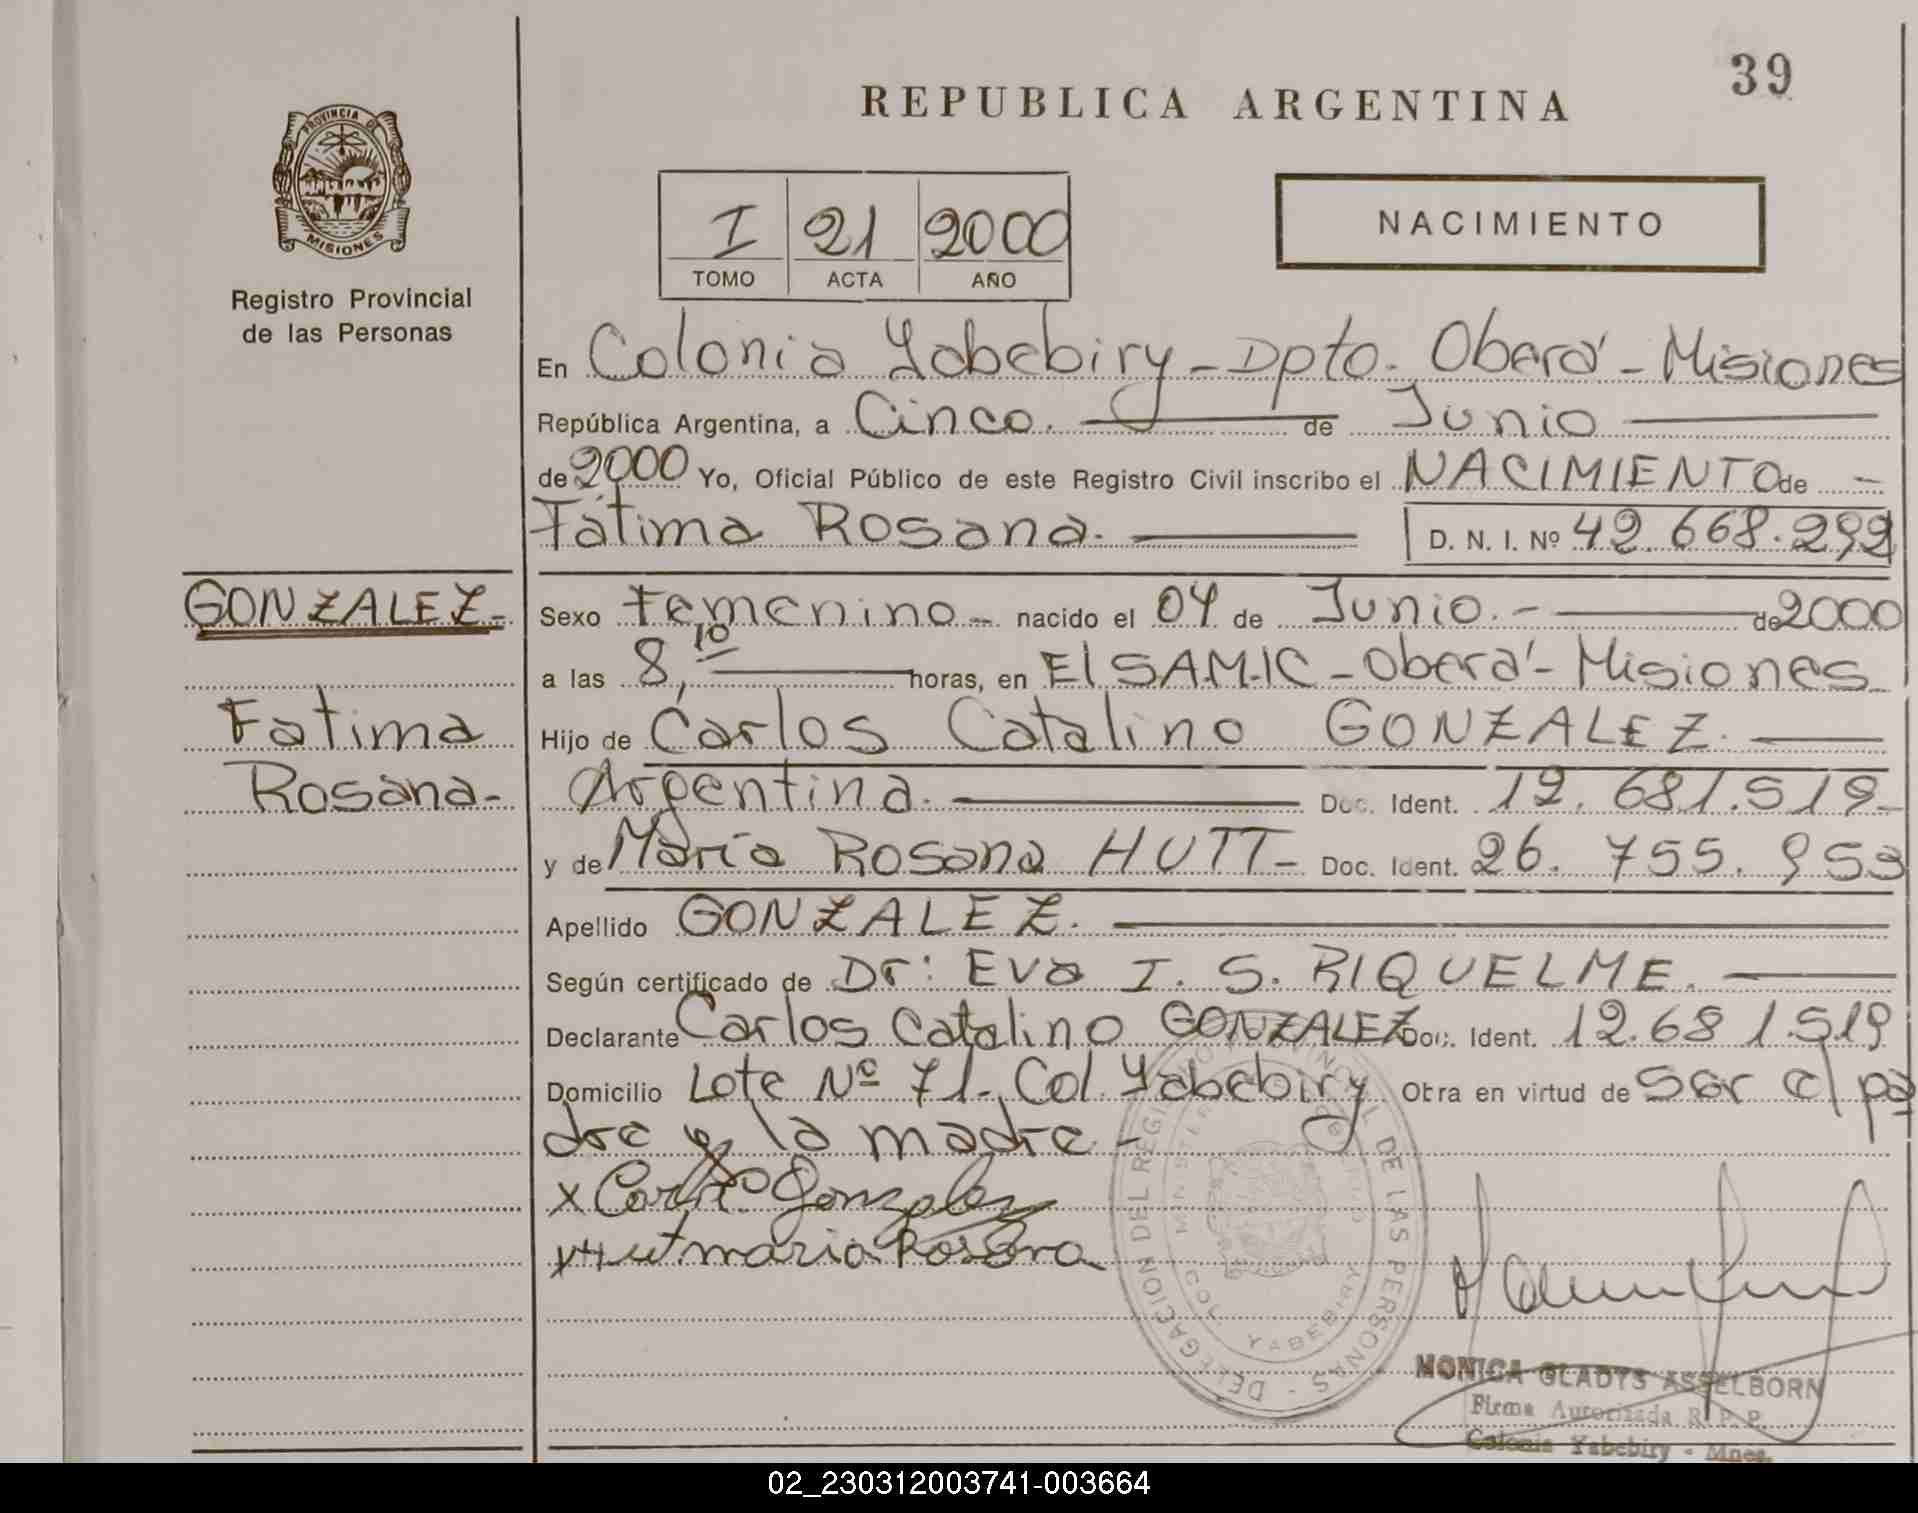 39
REPUBLICA ARGENTINA
PROVINCIA DE
MISIONES
Registro Provincial
de las Personas
I 21 2000
TOMO ACTA AÑO
NACIMIENTO
En Colonia Yabebiry - Dpto. Oberá - Misiones
República Argentina, a Cinco. de Junio
de 2000 Yo, Oficial Público de este Registro Civil inscribo el NACIMIENTO de -
Fátima Rosana. D. N. I. Nº 42.668.292
GONZALEZ-
Fatima
Rosana-
Sexo Femenino - nacido el 04 de Junio. - de 2000
a las 8,10 horas, en El SAMIC - Oberá - Misiones
Hijo de Carlos Catalino GONZALEZ.
Argentina. Doc. Ident. 12.681.519-
y de María Rosana HUTT- Doc. Ident. 26.755.953
Apellido GONZALEZ.
Según certificado de Dr: Eva I. S. RIQUELME.
Declarante Carlos Catalino GONZALEZ Doc. Ident. 12.681.519
Domicilio Lote Nº 71. Col. Yabebiry Obra en virtud de Ser el pa
dre y la madre -
x Carlos Gonzalez
x Hut maria Rosana
DELEGACION DEL REGISTRO PROVINCIAL DE LAS PERSONAS -
COL. YABEBIRY
MONICA GLADYS ASSELBORN
Firma Autorizada R. P. P.
Colonia Yabebiry - Mnes.
02_230312003741-003664